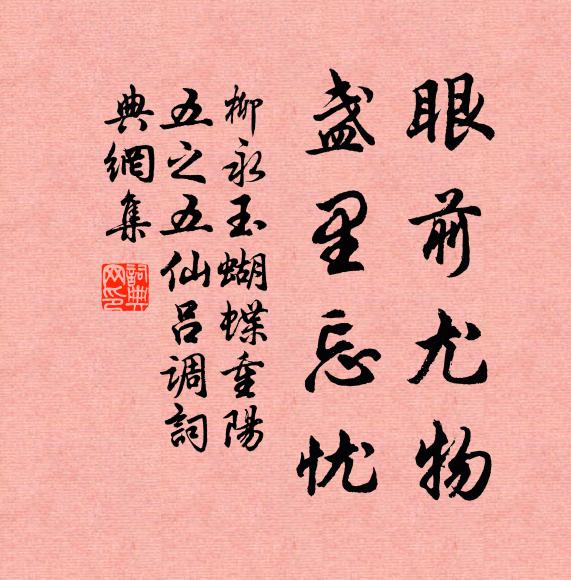 眼前尤物
盏里忘忧
柳永玉蝴蝶重陽
五之五仙吕调詞
典網集
詞典网印